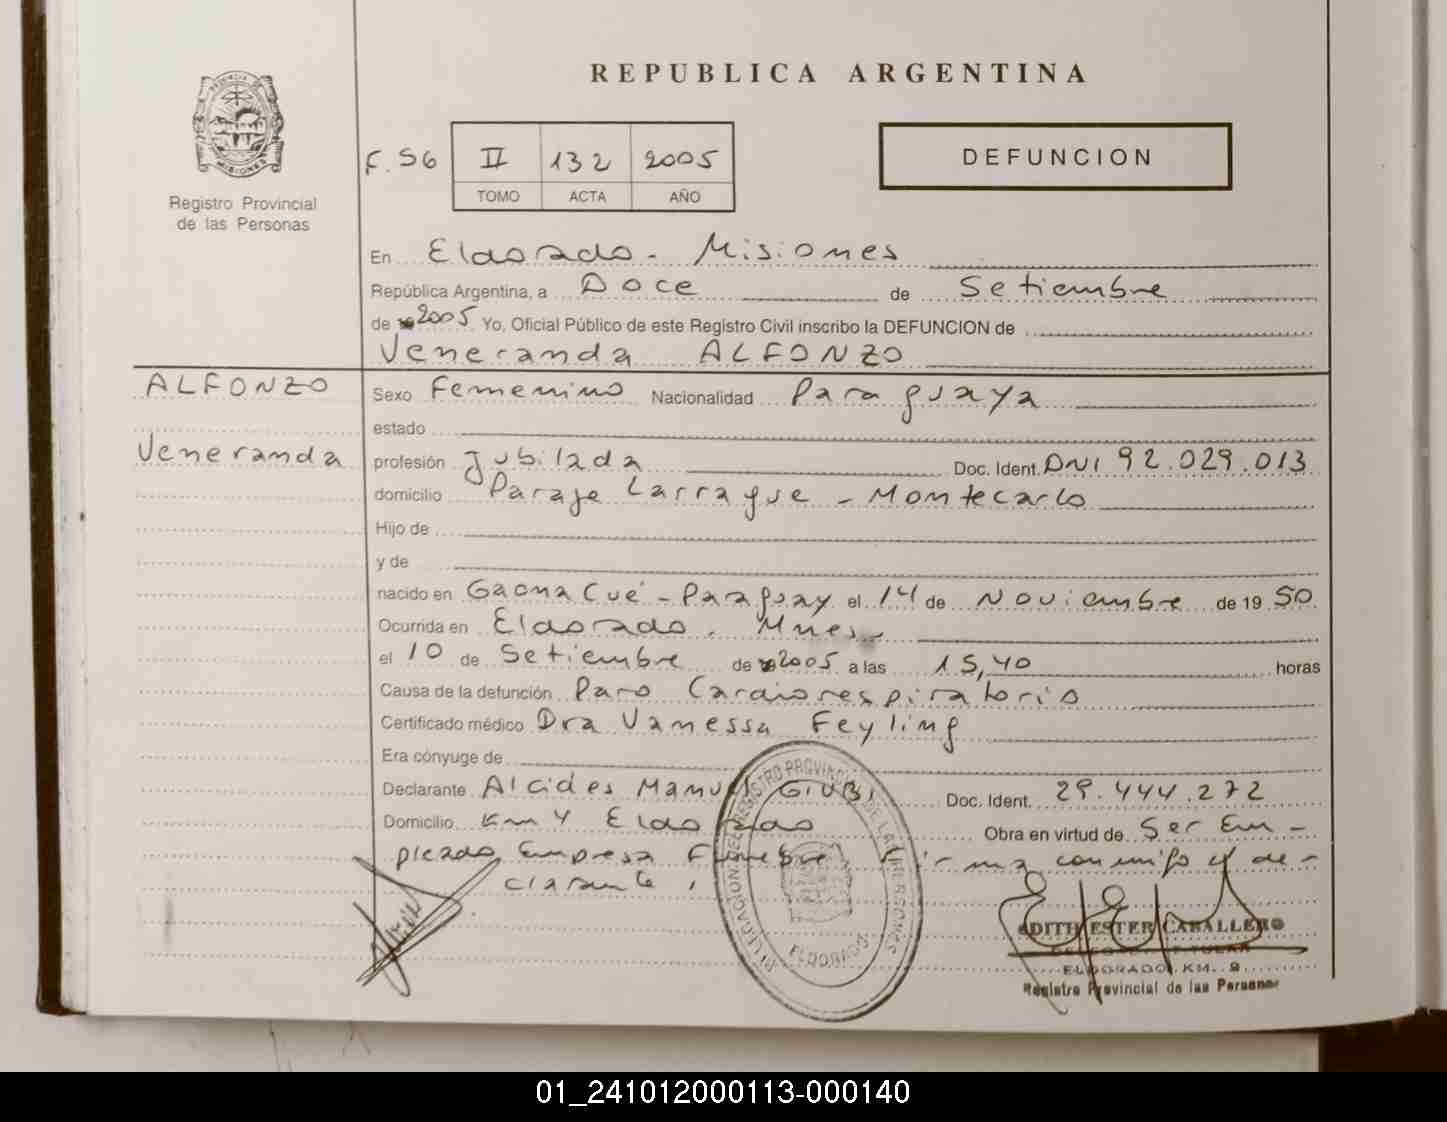 REPUBLICA ARGENTINA
PROVINCIA DE MISIONES
Registro Provincial
de las Personas
F. 56 II 132 2005
TOMO ACTA AÑO
DEFUNCION
En Eldorado - Misiones
República Argentina, a Doce de Setiembre
de 2005 Yo, Oficial Público de este Registro Civil inscribo la DEFUNCION de
Veneranda ALFONZO
ALFONZO
Veneranda
Sexo Femenino Nacionalidad Paraguaya
estado
profesión Jubilada Doc. Ident. DNI 92.029.013
domicilio Paraje Larrague - Montecarlo
Hijo de
y de
nacido en Gaona Cué - Paraguay el 14 de Noviembre de 19 50
Ocurrida en Eldorado. Mnes.
el 10 de Setiembre de 2005 a las 15,40 horas
Causa de la defunción Paro Cardiorespiratorio
Certificado médico Dra Vanessa Feyling
Era cónyuge de
Declarante Alcides Manuel GIUBI Doc. Ident. 29.444.272
Domicilio Km 4 Eldorado Obra en virtud de Ser Em-
pleado Empresa Funebre Firma conmigo el de-
clarante.
DELEGACION DEL REGISTRO PROVINCIAL DE LAS PERSONAS
ELDORADO
EDITH ESTER CABALLERO
ELDORADO, KM. 9
Registro Provincial de las Personas
01_241012000113-000140